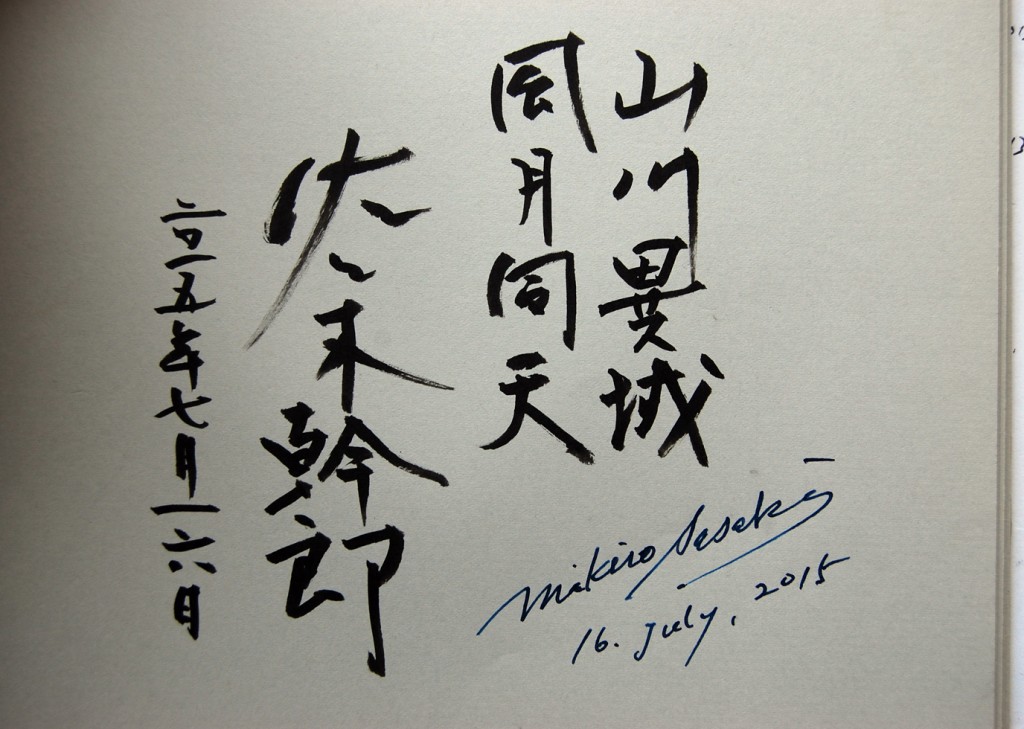 山川異域
風月同天
佐々木幹郎
二〇一五年七月一六日
Mikiro Sasaki
16. July, 2015